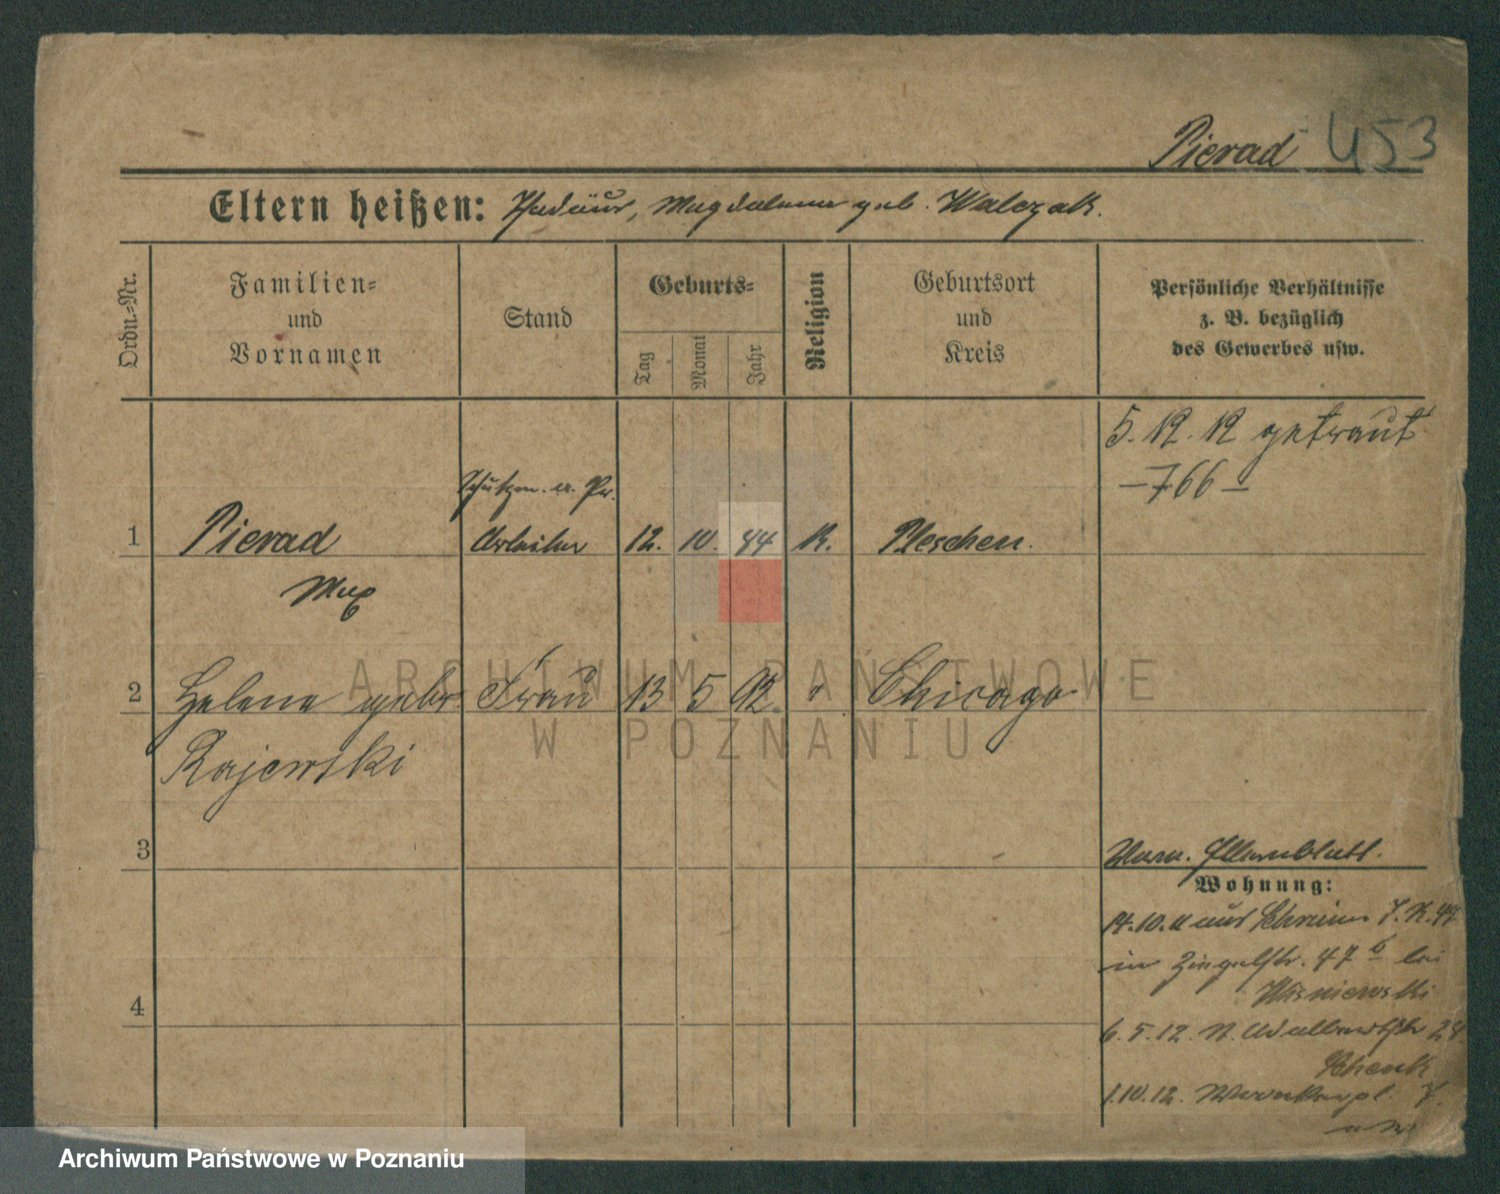 Pierad 453
Eltern heißen: Thadäus, Magdalena geb. Walczak.
Ordn.-Nr.
Familien-
und
Vornamen
Stand
Geburts-
Tag
Monat
Jahr
Religion
Geburtsort
und
Kreis
Persönliche Verhältnisse
z. B. bezüglich
des Gewerbes usw.
5. 12. 12 getraut
– 766 –
1 Pierad Arbeiter 12. 10. 84 K. Pleschen.
Max
2 Helene gebr. Frau 13 5 92 Chicago
Rajewski
3
Elternblatt.
Wohnung:
14.10.11 aus Schrimm
in Ziegelstr. 47 b bei
Wisniewski
4
6. 5. 12. N. 28
Schenk
1.10.12. 7.
ARCHIWUM PAŃSTWOWE
W POZNANIU
Archiwum Państwowe w Poznaniu